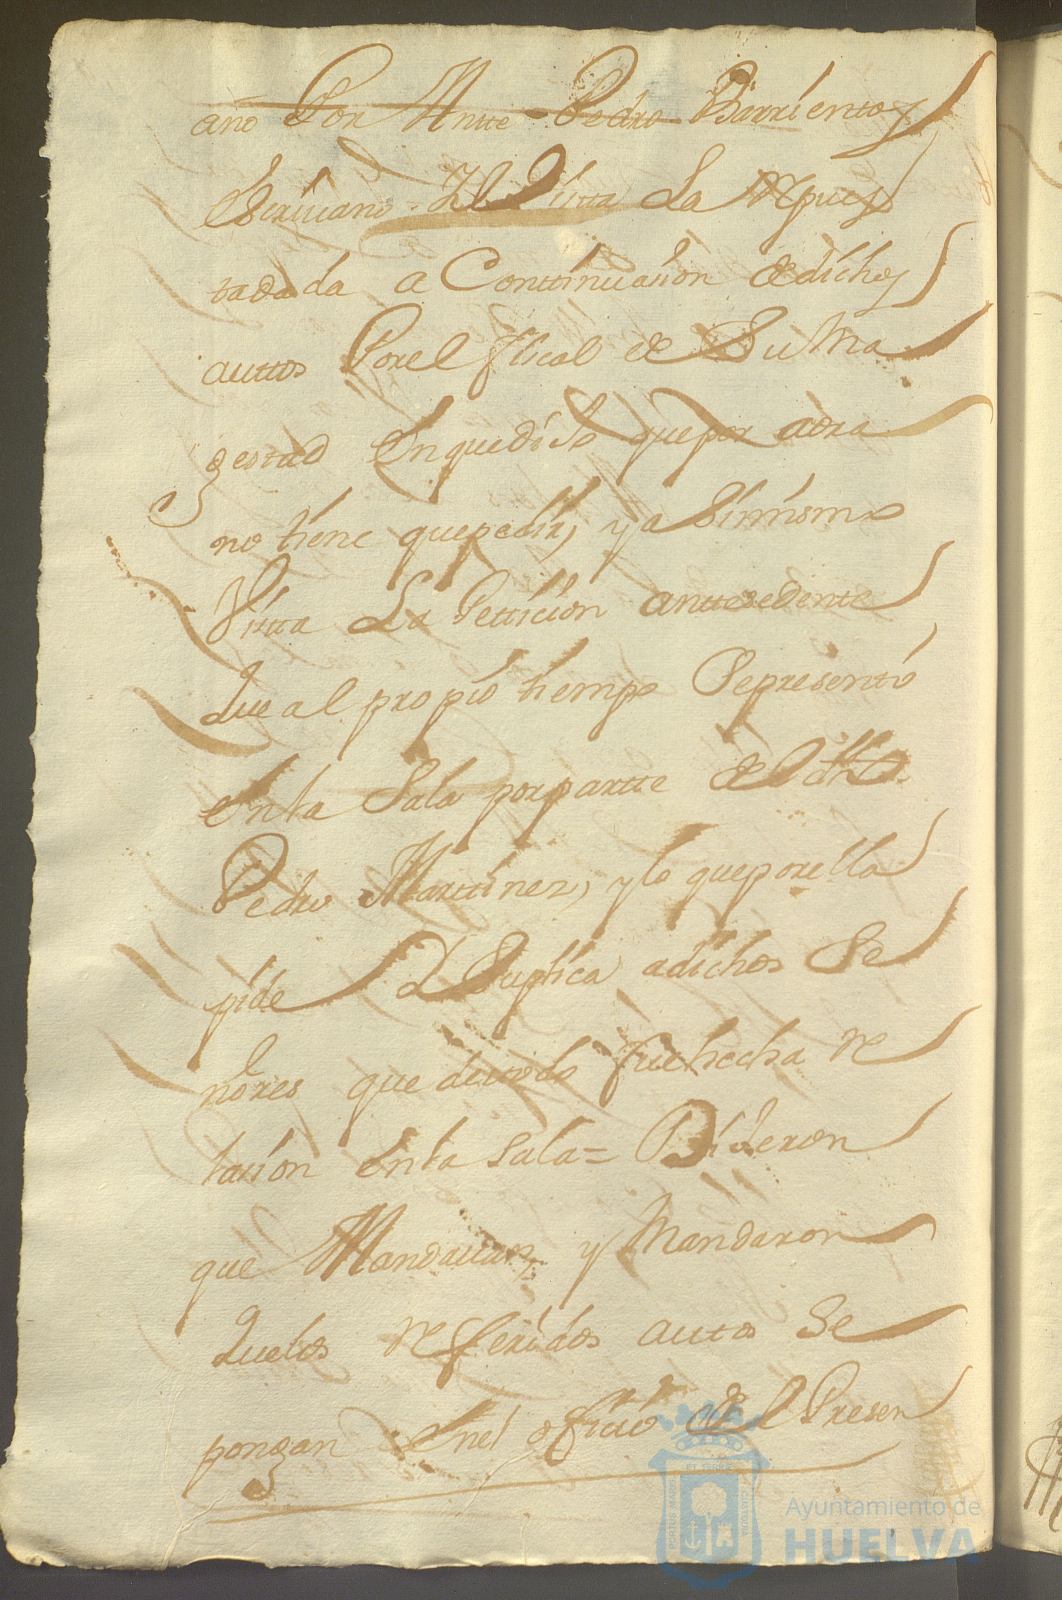 año Por Antte Pedro Barrientos
Escriuano Y Vistta La Respues
tadada a Conttinuaçion de dichos
auttos Porel fiscal de Su Ma
gestad Enquedijo quepor aora
no tiene quepedir, y asimismo
Vistta La Pettiçion anttesedente
Que al propio tiempo Sepresento
En la Sala porpartte del dho
Pedro Marttinez, y lo queporella
pide Y Suplica adichos Se
ñores que fuehecha re
laçion En la Sala = Dixeron
que Mandauan, y Mandaron
Quelos referidos autos Se
pongan Enel ofiçio del Presen
Ayuntamiento de
HUELVA